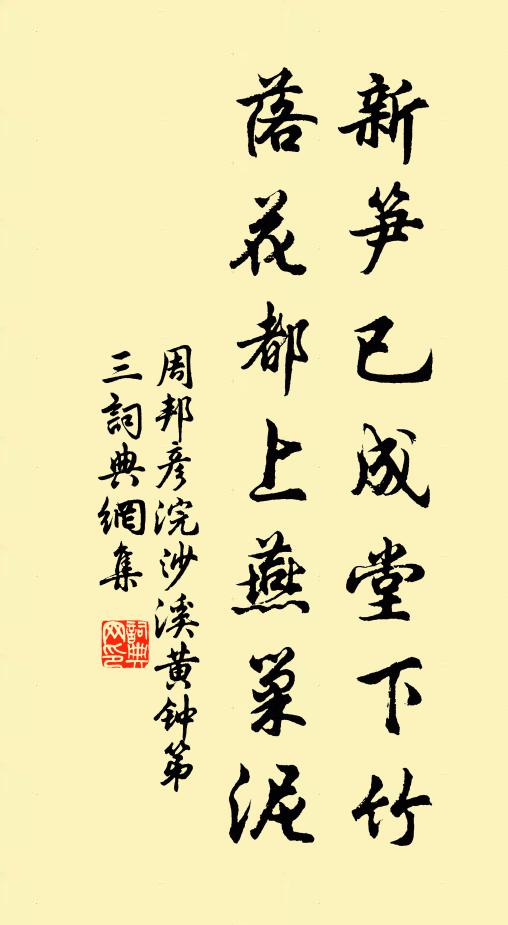 新笋已成堂下竹
落花都上燕巢泥
周邦彦浣沙溪黄钟第
三詞典網集
詞典
网印